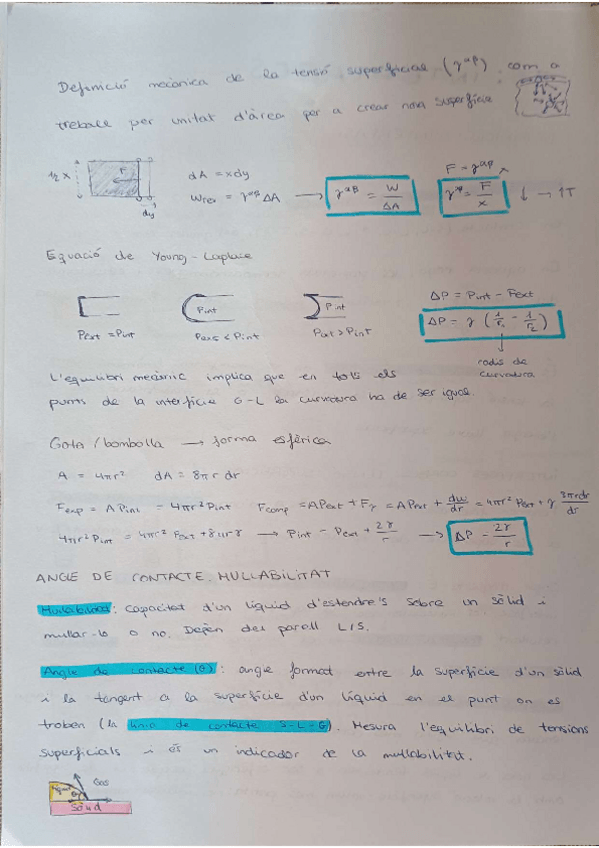 Definició mecànica de la tensió superficial (γ^αβ) com a
treball per unitat d'àrea per a crear nova superfície
½ x F dy
dA = xdy
Wrev = γ^αβ ΔA → γ^αβ = W/ΔA
F = γ^αβ x
γ^αβ = F/x ↓ → ↑T
Equació de Young-Laplace
Pext = Pint
Pint
Pext < Pint
Pint
Pext > Pint
ΔP = Pint - Pext
ΔP = γ (1/r₁ - 1/r₂)
radis de
curvatura
L'equilibri mecànic implica que en tots els
punts de la interfície G-L la curvatura ha de ser igual.
Gota / bombolla → forma esfèrica
A = 4πr² dA = 8πr dr
Fexp = A Pint = 4πr² Pint Fcomp = A Pext + Fγ = A Pext + dW/dr = 4πr² Pext + γ 8πrdr/dr
4πr² Pint = 4πr² Pext + 8πrγ → Pint - Pext + 2γ/r → ΔP - 2γ/r
ANGLE DE CONTACTE. MULLABILITAT
Mullabilitat: capacitat d'un líquid d'estendre's sobre un sòlid i
mullar-lo o no. Depèn del parell L/S.
Angle de contacte (θ): angle format entre la superfície d'un sòlid
i la tangent a la superfície d'un líquid en el punt on es
troben (la línia de contacte S-L-G). Mesura l'equilibri de tensions
superficials i és un indicador de la mullabilitat.
Líquid θ Gas
Sòlid